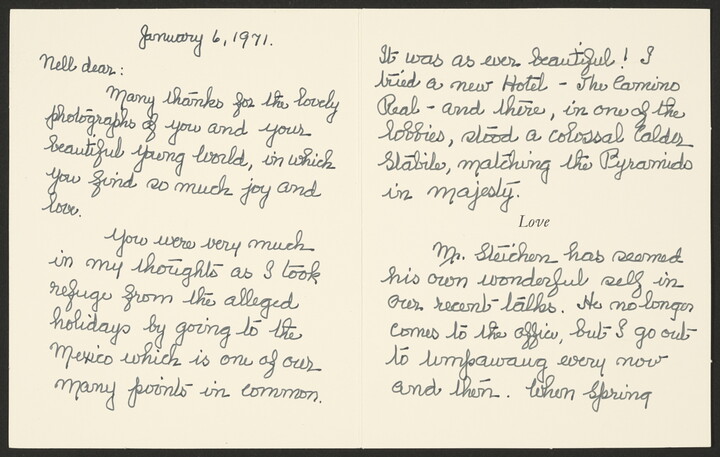 January 6, 1971.
Nell dear:
Many thanks for the lovely
photographs of you and your
beautiful young world, in which
you find so much joy and
love.
You were very much
in my thoughts as I took
refuge from the alleged
holidays by going to the
Mexico which is one of our
many points in common.
It was as ever beautiful! I
tried a new Hotel - The Camino
Real - and there, in one of the
lobbies, stood a colossal Calder
Stabile, matching the Pyramids
in majesty.
Love
Mr. Steichen has seemed
his own wonderful self in
our recent talks. He no longer
comes to the office, but I go out
to Umpawaug every now
and then. When Spring